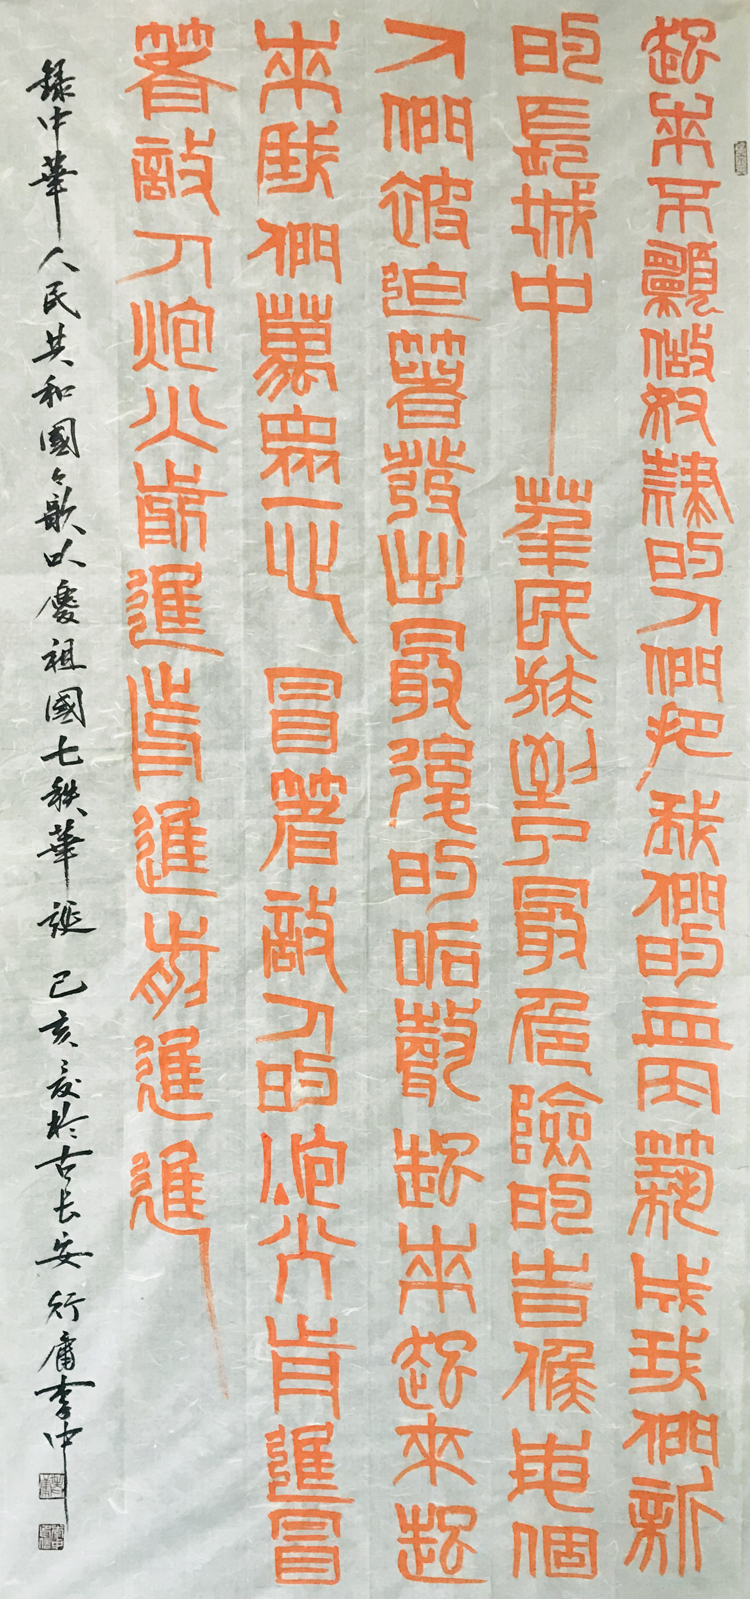 起來不願做奴隸的人們把我們的血肉築成我們新
的長城中華民族到了最危險的時候每個
人們被迫著發出最後的吼聲起來起來起
來我們萬眾一心冒著敵人的炮火前進冒
著敵人炮火前進前進前進進
錄中華人民共和國々歌以慶祖國七秩華誕 己亥夏於古长安 行庸李中